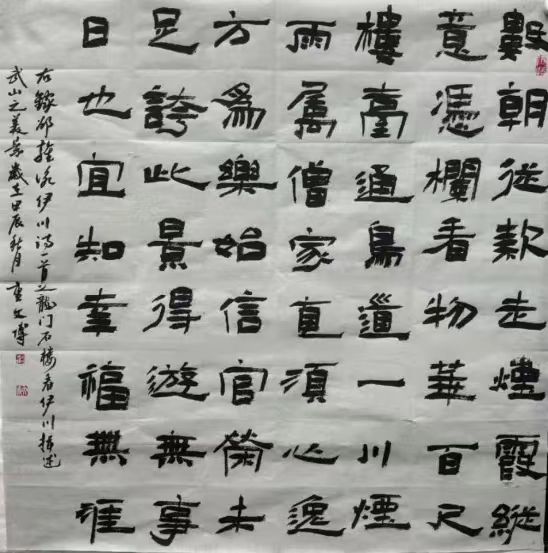 數朝從款走煙霞縱
意憑欄看物華百尺
樓臺通鳥道一川煙
雨屬僧家直須心逸
方爲樂始信官榮未
足誇此景得遊無事
日也宜知幸福無涯
右錄邵雍詠伊川詩一首之龍门石楼看伊川描述
武山之美歲在甲辰秋月